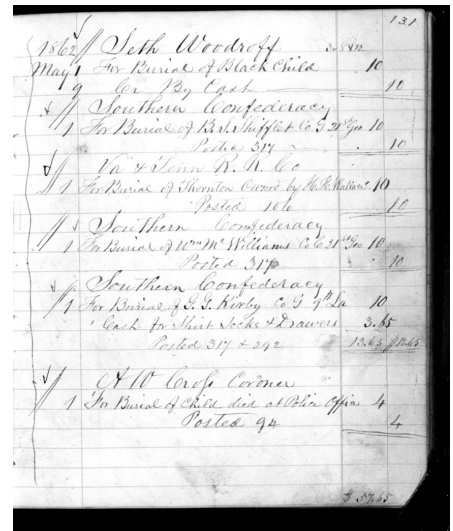 131
1862 Seth Woodroff
May 1 For Burial of Black Child 10
9 Cr By Cash 10
Southern Confederacy
1 For Burial of B. S. Shifflet Co G 21st Geo 10
Posted 317 10
Va & Tenn R. R. Co
1 For Burial of Thornton Owned by H. K. Wallace 10
Posted 106 10
Southern Confederacy
1 For Burial of Wm McWilliams Co C 21st Geo 10
Posted 317 10
Southern Confederacy
1 For Burial of G. G. Kirby Co G 9th La 10
" Cash for Shirt Socks & Drawers 3.65
Posted 317 & 292 13.65 13.65
A W Cross Coroner
1 For Burial of Child died at Police Office 4
Posted 94 4
$ 57.65